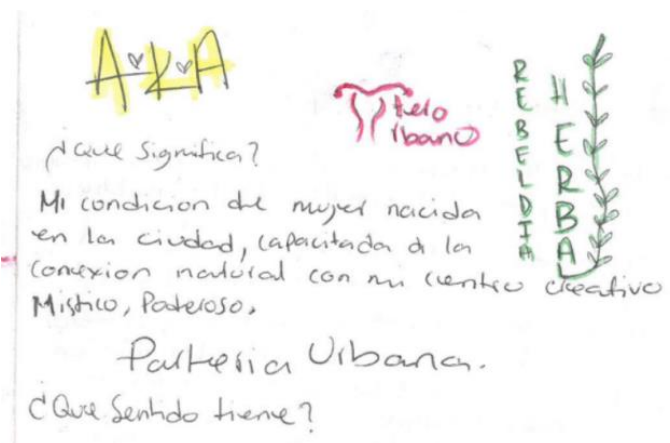 A·K·A
Utero
Urbano
REBELDIA
HERBAL
¿Que Significa?
Mi condicion de mujer nacida
en la ciudad, capacitada a la
conexion natural con mi centro creativo
Mistico, Poderoso.
Parteria Urbana.
¿Que Sentido tiene?